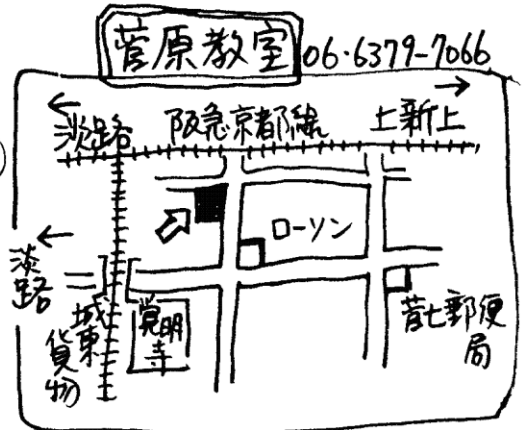 菅原教室 06・6379-7066
← →
淡路 阪急京都線 上新上
←
淡路
ローソン
城東貨物
覚明寺
菅七郵便局